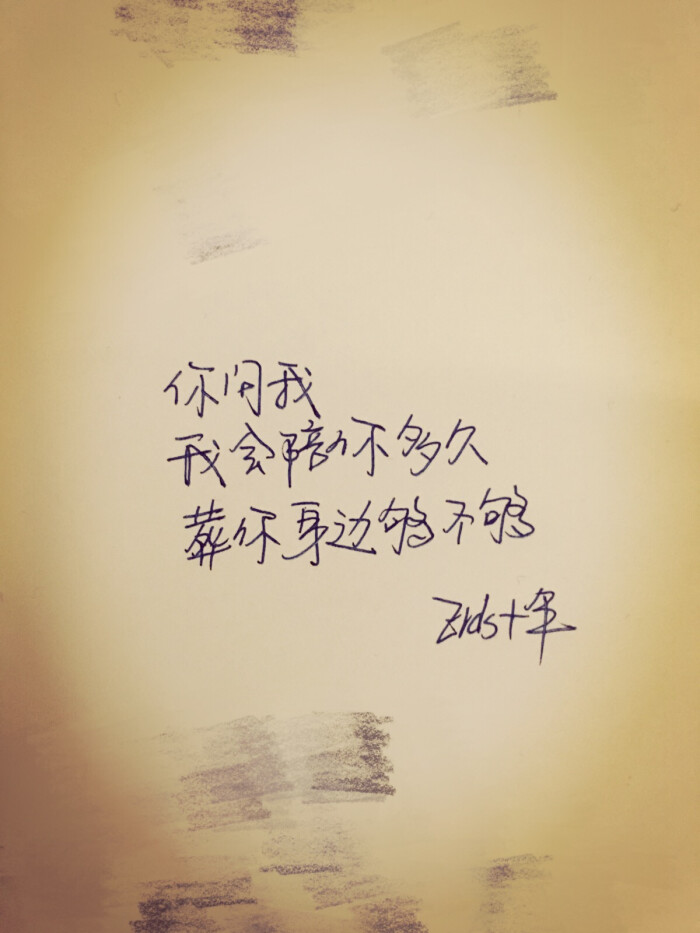 你问我
我会陪你多久
葬你身边够不够
Zrds十年